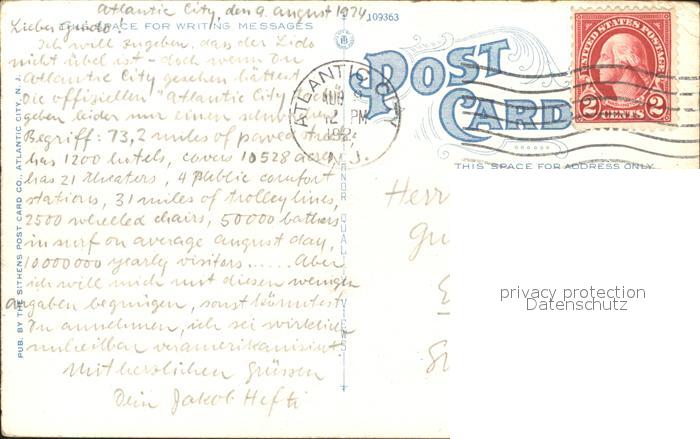 Atlantic City, den 9. August 1924
109363
SPACE FOR WRITING MESSAGES
Lieber Guido!
Ich will zugeben, dass der Lido
nicht übel ist - doch wenn Du
Atlantic City gesehen hättest
Die offiziellen "Atlantic City
geben leider nur einen
Begriff: 73,2 miles of paved
has 1200 hotels, covers 10528 acres
has 21 theaters, 4 public comfort
stations, 31 miles of trolley lines,
2500 wheeled chairs, 50000 bathers
in surf on average august day,
10000000 yearly visitors...... Aber
ich will mich mit diesen wenigen
Angaben begnügen, sonst könntest
Du annehmen, ich sei wirklich
unheilbar veramerikanisiert.
Mit herzlichen Grüssen
Dein Jakob Hefti
PUB. BY THE SITHENS POST CARD CO., ATLANTIC CITY, N. J.
ATLANTIC CITY
AUG
12 PM
192
N. J.
POST
CARD
UNITED STATES POSTAGE
2 CENTS 2
THIS SPACE FOR ADDRESS ONLY
Herrn
privacy protection
Datenschutz